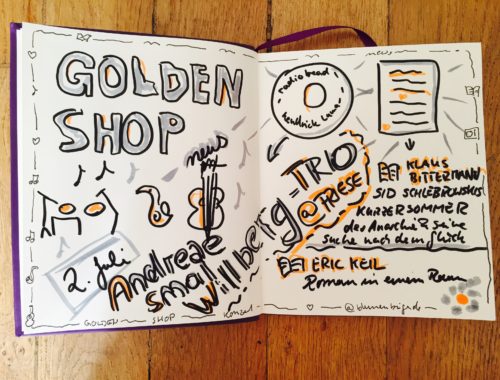 GOLDEN
SHOP
news
2. Juli
Andreae
Small
Willberg =
TRIO
@ FRIESE
GOLDEN SHOP Konzert
news
radiohead
kendrick lamar
KLAUS
BITTERMANN
SID SCHLEBROWSKIS
KURZER SOMMER
der Anarchie & seine
Suche nach dem Glück
ERIC KEIL
Roman in einem Raum